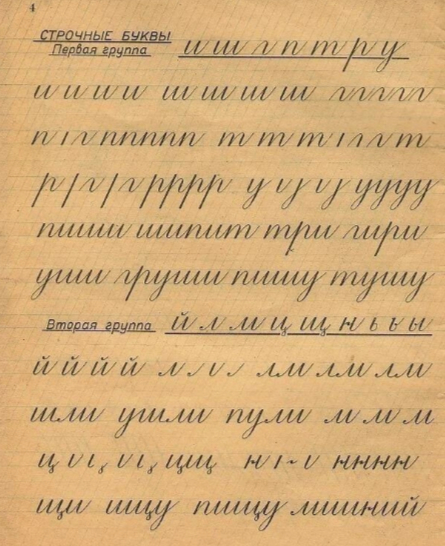 4
СТРОЧНЫЕ БУКВЫ
Первая группа и ш г п т р у
и и и и ш ш ш ш ш г г г г г
п ı г п п п п п т т т ı г г т
р ſ г ſ г р р р р у ı ȷ ı ȷ у у у у
пиши шипит три гири
уши груши пишу тушу
Вторая группа й л м ц щ н ь ъ ы
й й й й л лм лм лм
шли ушли пули м м м
ц ц щ н н н н н
щи ищу пищу лишний